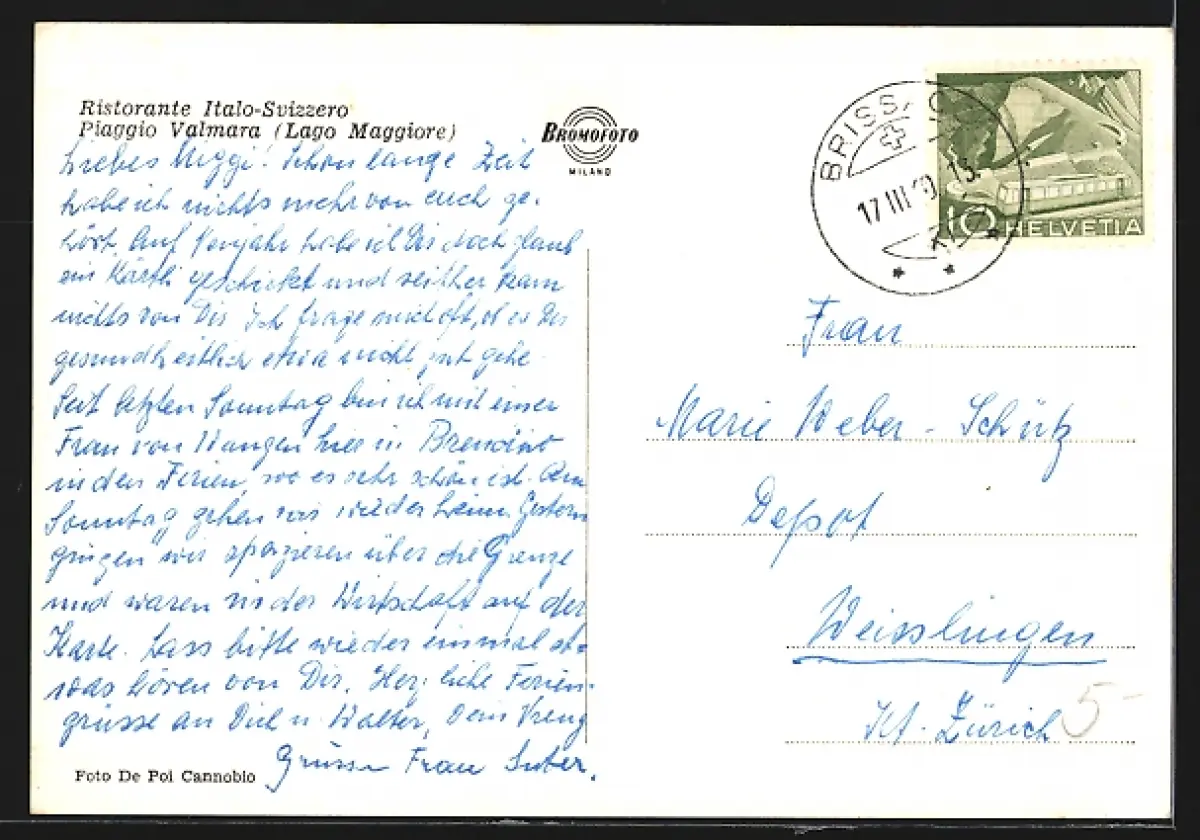 Ristorante Italo-Svizzero
Piaggio Valmara (Lago Maggiore)
BROMOFOTO
MILANO
Liebes Miggi! Schon lange Zeit
habe ich nichts mehr von euch ge-
hört. Auf Neujahr habe ich Dir doch glaub
ein Kärtli geschickt und seither kam
nichts von Dir. Ich frage mich oft, ob es Dir
gesundheitlich etwa nicht gut gehe.
Seit letzten Sonntag bin ich mit einer
Frau von Wangen hier in
in den Ferien, wo es sehr schön ist. Am
Sonntag gehen wir wieder heim. Gestern
gingen wir spazieren über die Grenze
und waren in der Wirtschaft auf der
Karte. Lass bitte wieder einmal et-
was hören von Dir. Herzliche Ferien-
grüsse an Dich u. Walter, Dein Vreny
Grüsse Frau Suter.
Foto De Poi Cannobio
BRISSAGO
17 III
10 HELVETIA
Frau
Marie Weber - Schütz
Depot
Weisslingen
Kt. Zürich
5-